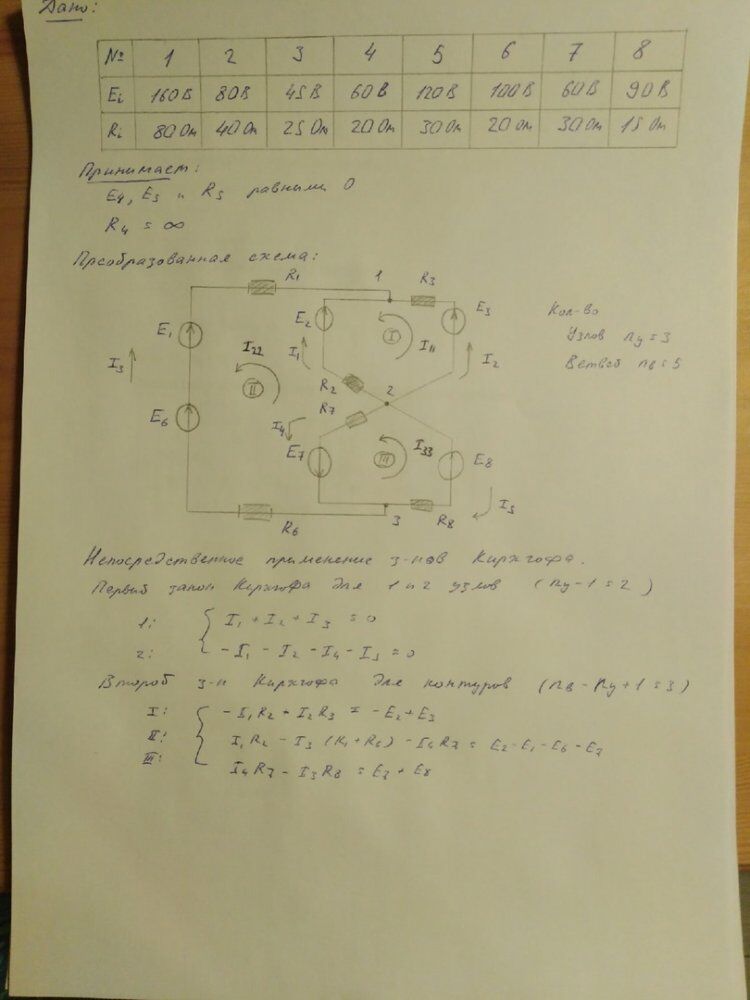 Дано:
№ 1 2 3 4 5 6 7 8
Ei 160В 80В 45В 60В 120В 100В 60В 90В
Ri 80 Ом 40 Ом 25 Ом 20 Ом 30 Ом 20 Ом 30 Ом 15 Ом
Принимает:
E4, E5 и R5 равными 0
R4 = ∞
Преобразованная схема:
R1 1 R3
E2 E3
E1 I I11
I3 I22 I1 I2
II R2 2
R7
E6 I4
E7 III I33 E8
R6 3 R8 I5
Кол-во
Узлов nу = 3
Ветвей nв = 5
Непосредственное применение з-нов Кирхгофа.
Первый закон Кирхгофа для 1 и 2 узлов (nу-1=2)
1: I1 + I2 + I3 = 0
2: -I1 - I2 - I4 - I5 = 0
Второй з-н Кирхгофа для контуров (nв - nу + 1 = 3)
I: -I1R2 + I2R3 = -E2 + E3
II: I1R2 - I3 (R1+R6) - I4R7 = E2-E1-E6-E7
III: I4R7 - I5R8 = E7 + E8